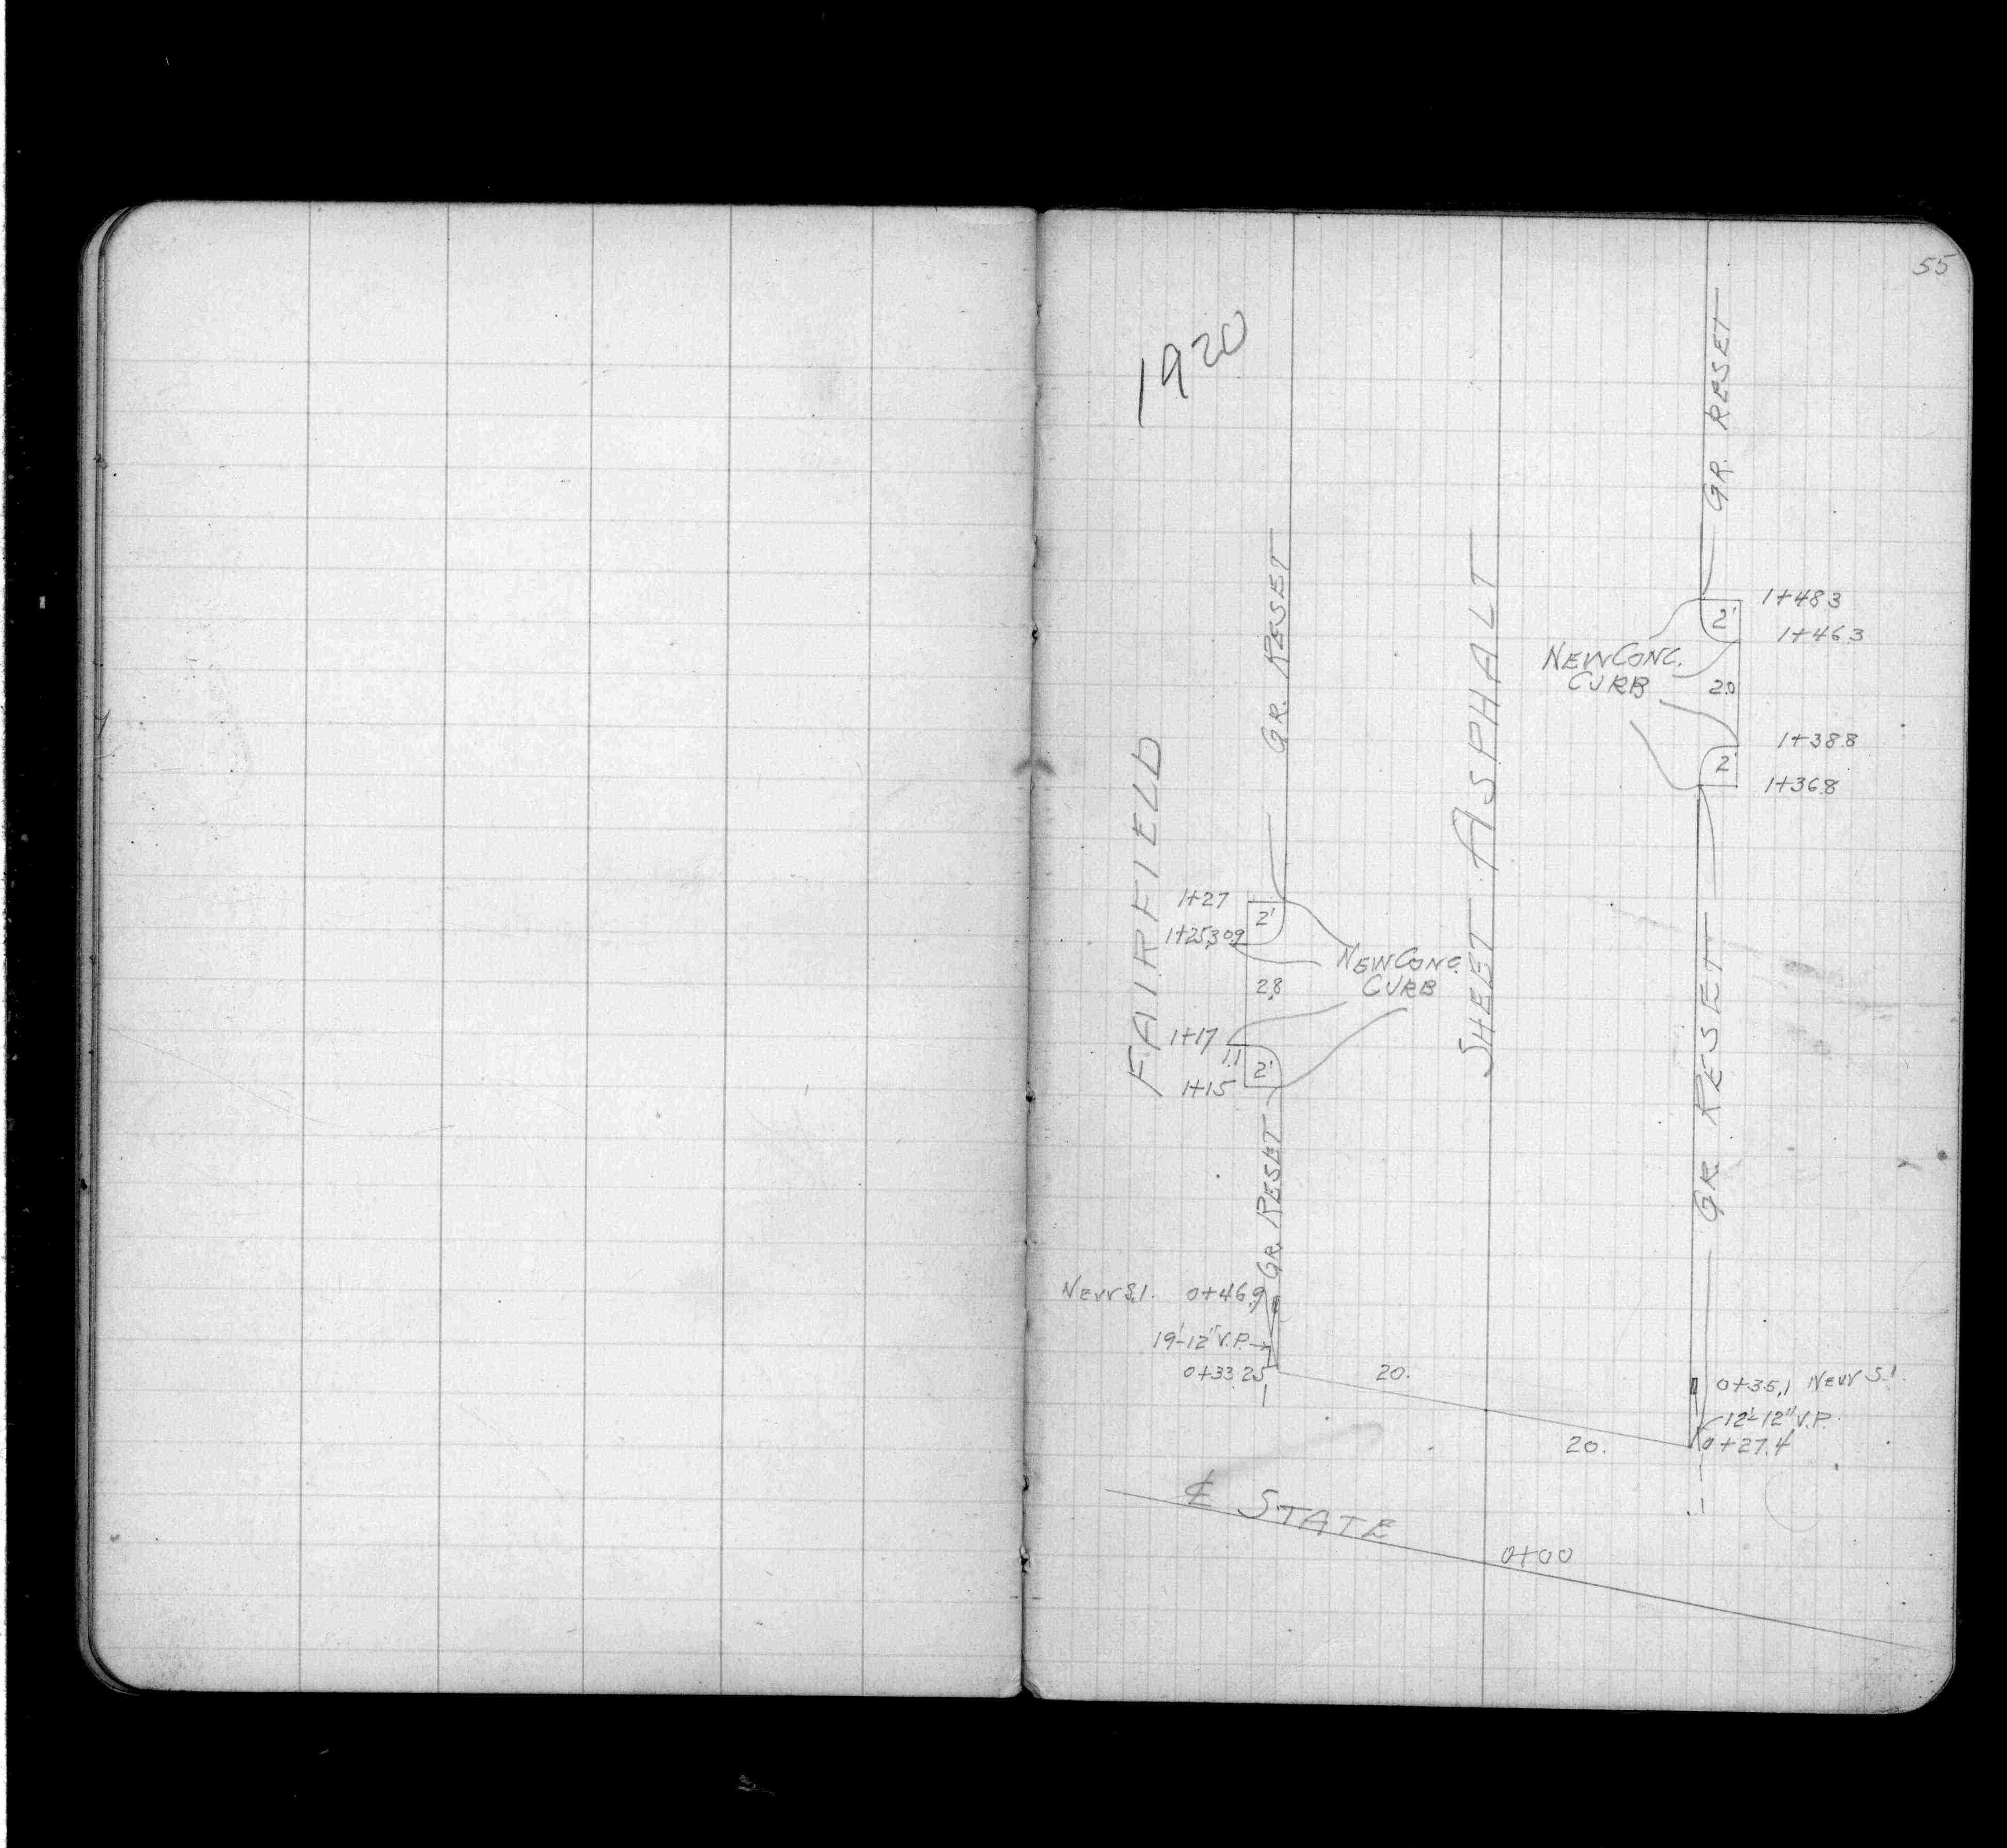 55
1920
GR. RESET
GR. RESET
1+48.3
2'
1+46.3
NEW CONC.
CURB
2.0
1+38.8
2'
1+36.8
FAIRFIELD
SHEET ASPHALT
1+27
2'
1+25.3 0.9
NEW CONC.
CURB
2.8
1+17
1.1
2'
1+15
GR. RESET
GR. RESET
NEW S.I. 0+46.9
19'-12" V.P.
0+33.25
20.
0+35.1 NEW S.I.
12'-12" V.P.
0+27.4
20.
℄ STATE
0+00